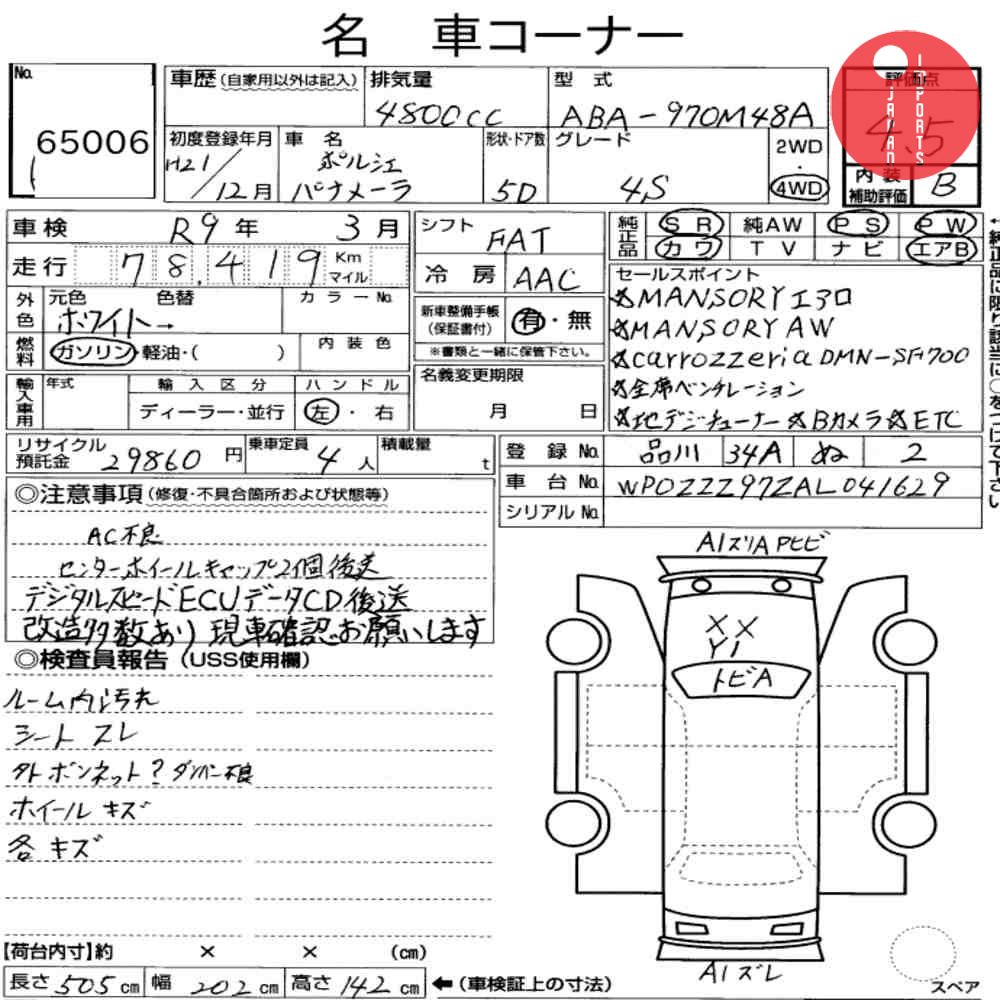 名 車コーナー
No. 65006
車歴 (自家用以外は記入) 排気量 4800CC
型 式 ABA-970M48A
評価点 4.5
JAPAN IMPORTS
初度登録年月 H21/12月
車 名 ポルシェ パナメーラ
形状・ドア数 5D
グレード 4S
2WD・4WD
内装補助評価 B
車検 R9年 3月
走行 78,419 Km マイル
シフト FAT
冷房 AAC
純正品 SR 純AW PS PW
カワ TV ナビ エアB
←純正品に限り該当に○をつけて下さい
外色 元色 色替 カラーNo.
ホワイト→
燃料 ガソリン・軽油・( ) 内装色
新車整備手帳 (保証書付) 有・無
※書類と一緒に保管下さい。
セールスポイント
☆MANSORYエアロ
☆MANSORY AW
☆carrozzeria DMN-SF700
☆全席ベンチレーション
☆地デジチューナー☆Bカメラ☆ETC
輸入車用 年式 輸入区分 ハンドル
ディーラー・並行 左・右
名義変更期限 月 日
リサイクル預託金 29860円
乗車定員 4人
積載量 t
登録No. 品川 34A ぬ 2
車台No. WP0ZZZ97ZAL041629
シリアルNo.
◎注意事項 (修復・不具合箇所および状態等)
AC不良
センターホイールキャップ2個後送
デジタルスピードECUデータCD後送
改造多数あり 現車確認お願いします
◎検査員報告 (USS使用欄)
ルーム内汚れ
シート スレ
外ボンネット?ダンパー不良
ホイール キズ
各キズ
A1ズリA Pヒビ
XX
Y1
トビA
A1ズレ
スペア
【荷台内寸】約 × × (cm)
長さ 505 cm 幅 202 cm 高さ 142 cm ←(車検証上の寸法)